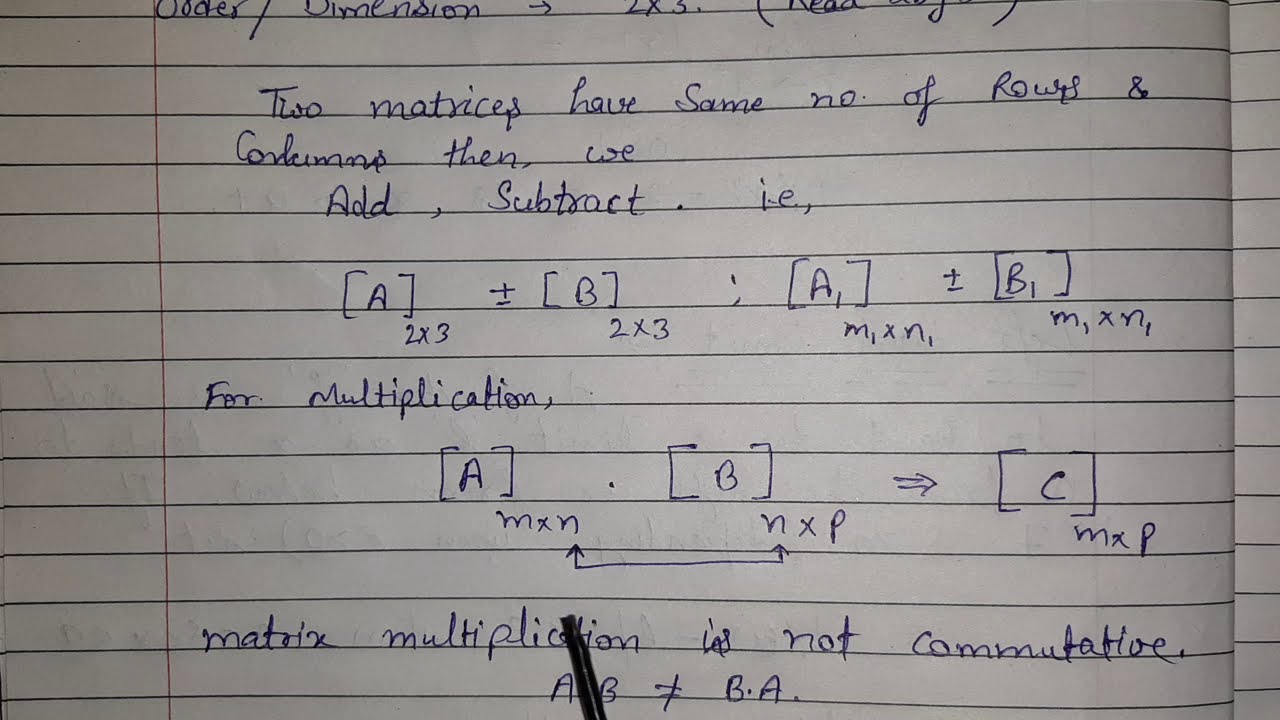 Order/ Dimension → 2×3. (Read
Two matrices have Same no. of Rows &
Columns then, we
Add , Subtract . i.e,
[A] 2×3 ± [B] 2×3 ; [A₁] m₁×n₁ ± [B₁] m₁×n₁
For Multiplication,
[A] m×n . [B] n×p ⇒ [C] m×p
matrix multiplication is not commutative.
A B ≠ B.A.